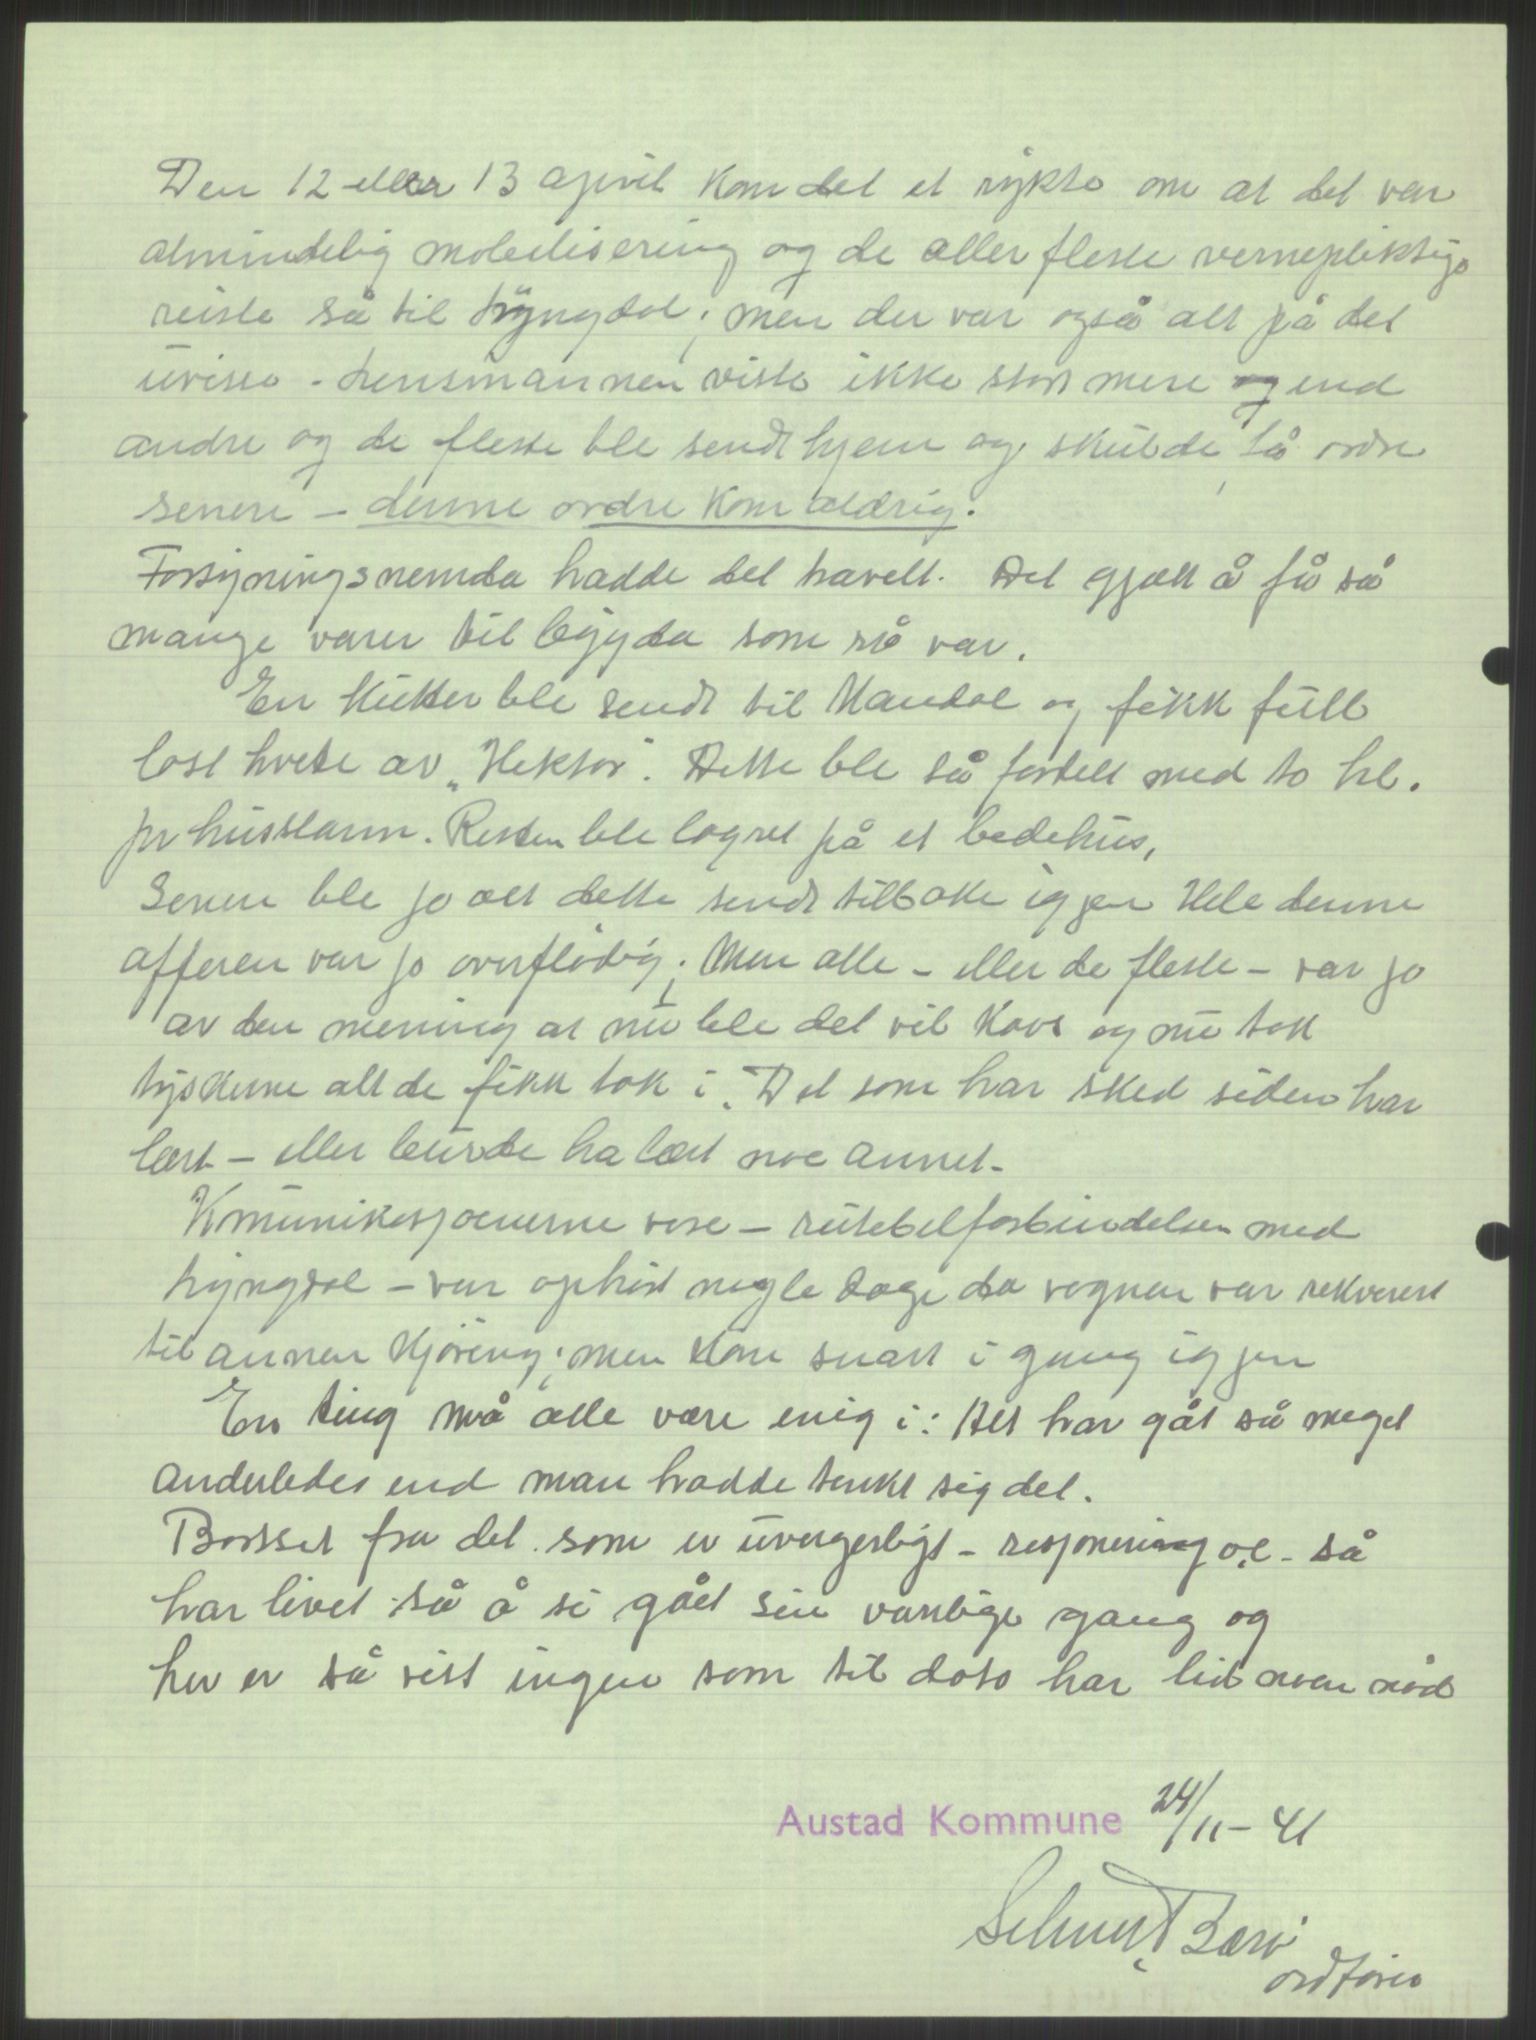 Den 12 eller 13 april kom det et rykte om at det var
almindelig mobilisering og de aller fleste vernepliktige
reiste så til Lyngdal; men der var også alt på det
uvisse - Lensmannen viste ikke stort mere end
andre og de fleste ble sendt hjem og skulde få ordre
senere - denne ordre kom aldrig.
Forsyningsnemda hadde det travelt. Det gjalt å få så
mange varer til bygda som rå var.
En kutter ble sendt til Mandal og fikk full
last hvete av „Hektor". Dette ble så fordelt med to hl.
pr husstann. Resten ble lagret på et bedehus,
Senere ble jo alt dette sendt tilbake igjen Hele denne
afferen var jo overflødig; Men alle - eller de fleste - var jo
av den mening at nu ble det vil kavt og nu tok
tyskerne alt de fikk tak i. Det som har sked siden har
lært - eller burde ha lært noe annet.
Kmunikasjonerne vore - rutebilforbindelsen med
Lyngdal - var ophørt nogle dage da vognen var rekvirert
til annen kjøring; men kom snart i gang igjen
En ting må alle være enig i: Det har gåt så meget
anderledes end man hadde tenkt sig det.
Bortset fra det som er uvergerligt - rasjonering o.l - så
har livet så å si gået sin vanlige gang og
her er så vist ingen som til dato har lid noen nød
Austad Kommune 24/11-41
Selmer Bærø
ordfører